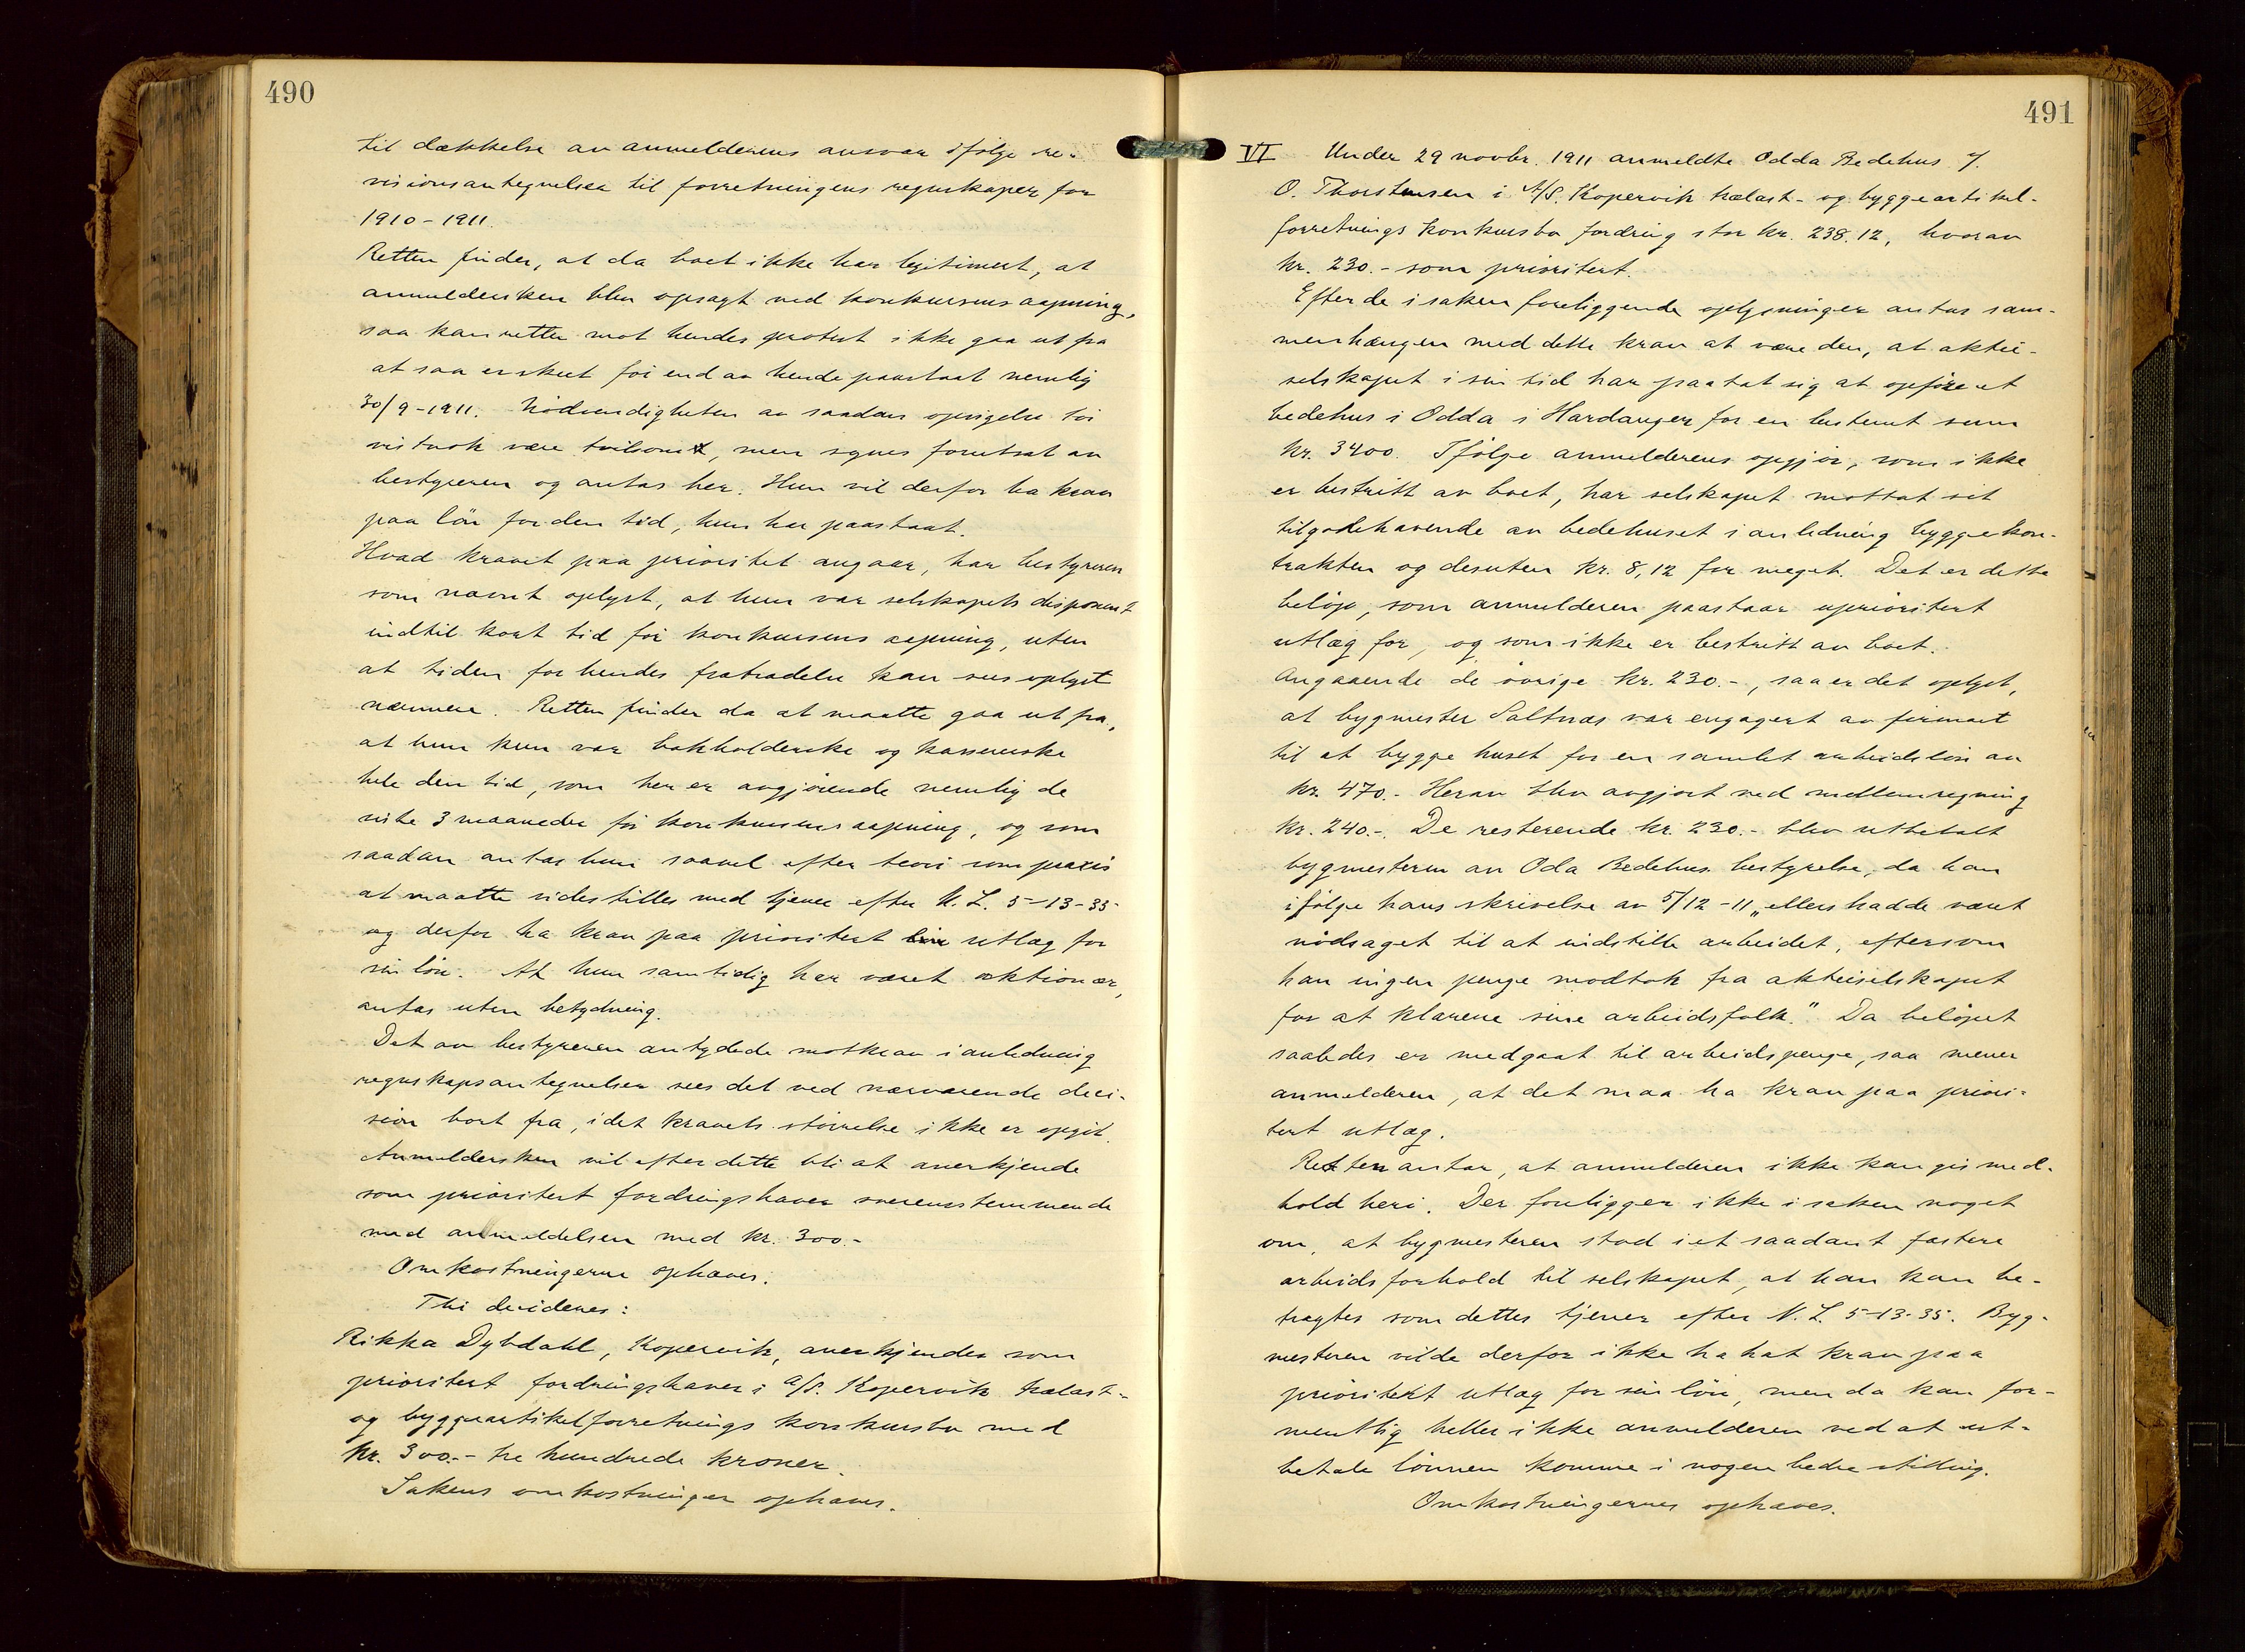 490
til dækkelse av anmelderens ansvar ifølge re-
visionsantegnelser til forretningens regnskaper for
1910-1911.
Retten finder, at da boet ikke har legitimert, at
anmeldersken blev opsagt ved konkursens aapning,
saa kan retten mot hendes protest ikke gaa ut fra
at saa er skeet før end av hende paastaat nemlig
30/9-1911. Nødvendigheten av saadan opsigelse tør
vistnok være tvilsomt, men synes forutsat av
bestyreren og antas her. Hun vil derfor ha krav
paa løn for den tid, hun har paastaat.
Hvad kravet paa prioritet angaar, har bestyreren
som nævnt oplyst, at hun var selskapets disponent
indtil kort tid før konkursens aapning, uten
at tiden for hendes fratrædelse kan sees oplyst
nærmere. Retten finder da at maatte gaa ut fra,
at hun kun var bokholderske og kassererske
hele den tid, som her er avgjørende nemlig de
siste 3 maaneder før konkursens aapning, og som
saadan antas hun saavel efter teori som praxis
at maatte sidestilles med tjener efter N. L. 5-13-35
og derfor ha krav paa prioritert utlæg for
sin løn. At hun samtidig har været aktionær,
antas uten betydning.
Det av bestyreren antydede motkrav i anledning
regnskapsantegnelser sees det ved nærværende deci-
sion bort fra, idet kravets størrelse ikke er opgit.
Anmeldersken vil efter dette bli at anerkjende
som prioritert fordringshaver overensstemmende
med anmeldelsen med kr. 300.-
Omkostningerne ophæves.
Thi decideres:
Rikka Dybdahl, Kopervik, anerkjendes som
prioritert fordringshaver i A/S. Kopervik trælast-
og byggeartikelforretnings konkursbo med
kr. 300.- tre hundrede kroner.
Sakens omkostninger ophæves.
491
VI Under 29 novbr. 1911 anmeldte Odda Bedehus v/
O. Thorstensen i A/S. Kopervik trælast- og byggeartikel-
forretnings konkursbo fordring stor kr. 238.12, hvorav
kr. 230.- som prioritert.
Efter de i saken foreliggende oplysninger antas sam-
menhængen med dette krav at være den, at aktie-
selskapet i sin tid har paatat sig at opføre et
bedehus i Odda i Hardanger for en bestemt sum
kr. 3400. Ifølge anmelderens opgjør, som ikke
er bestritt av boet, har selskapet mottat sit
tilgodehavende av bedehuset i anledning byggekon-
trakten og desuten kr. 8,12 for meget. Det er dette
beløp, som anmelderen paastaar uprioritert
utlæg for, og som ikke er bestritt av boet.
Angaaende de øvrige kr. 230.-, saa er det oplyst,
at bygmester Saltnæs var engagert av firmaet
til at bygge huset for en samlet arbeidsløn av
kr. 470.- Herav blev avgjort ved mellemregning
kr. 240.-. De resterende kr. 230.- blev utbetalt
bygmesteren av Oda Bedehus bestyrelse, da han
ifølge hans skrivelse av 5/12-11 „ellers hadde været
nødsaget til at indstille arbeidet, eftersom
han ingen penge modtok fra aktieselskapet
for at klarere sine arbeidsfolk." Da beløpet
saaledes er medgaat til arbeidspenge, saa mener
anmelderen, at det maa ha krav paa priori-
tert utlæg.
Retten antar, at anmelderen ikke kan gis med-
hold heri. Der foreligger ikke i saken noget
om, at bygmesteren stod i et saadant fastere
arbeidsforhold til selskapet, at han kan be-
tragtes som dettes tjener efter N. L. 5-13-35. Byg-
mesteren vilde derfor ikke ha hat krav paa
prioritert utlæg for sin løn, men da kan for-
mentlig heller ikke anmelderen ved at ut-
betale lønnen komme i nogen bedre stilling.
Omkostningernes ophæves.